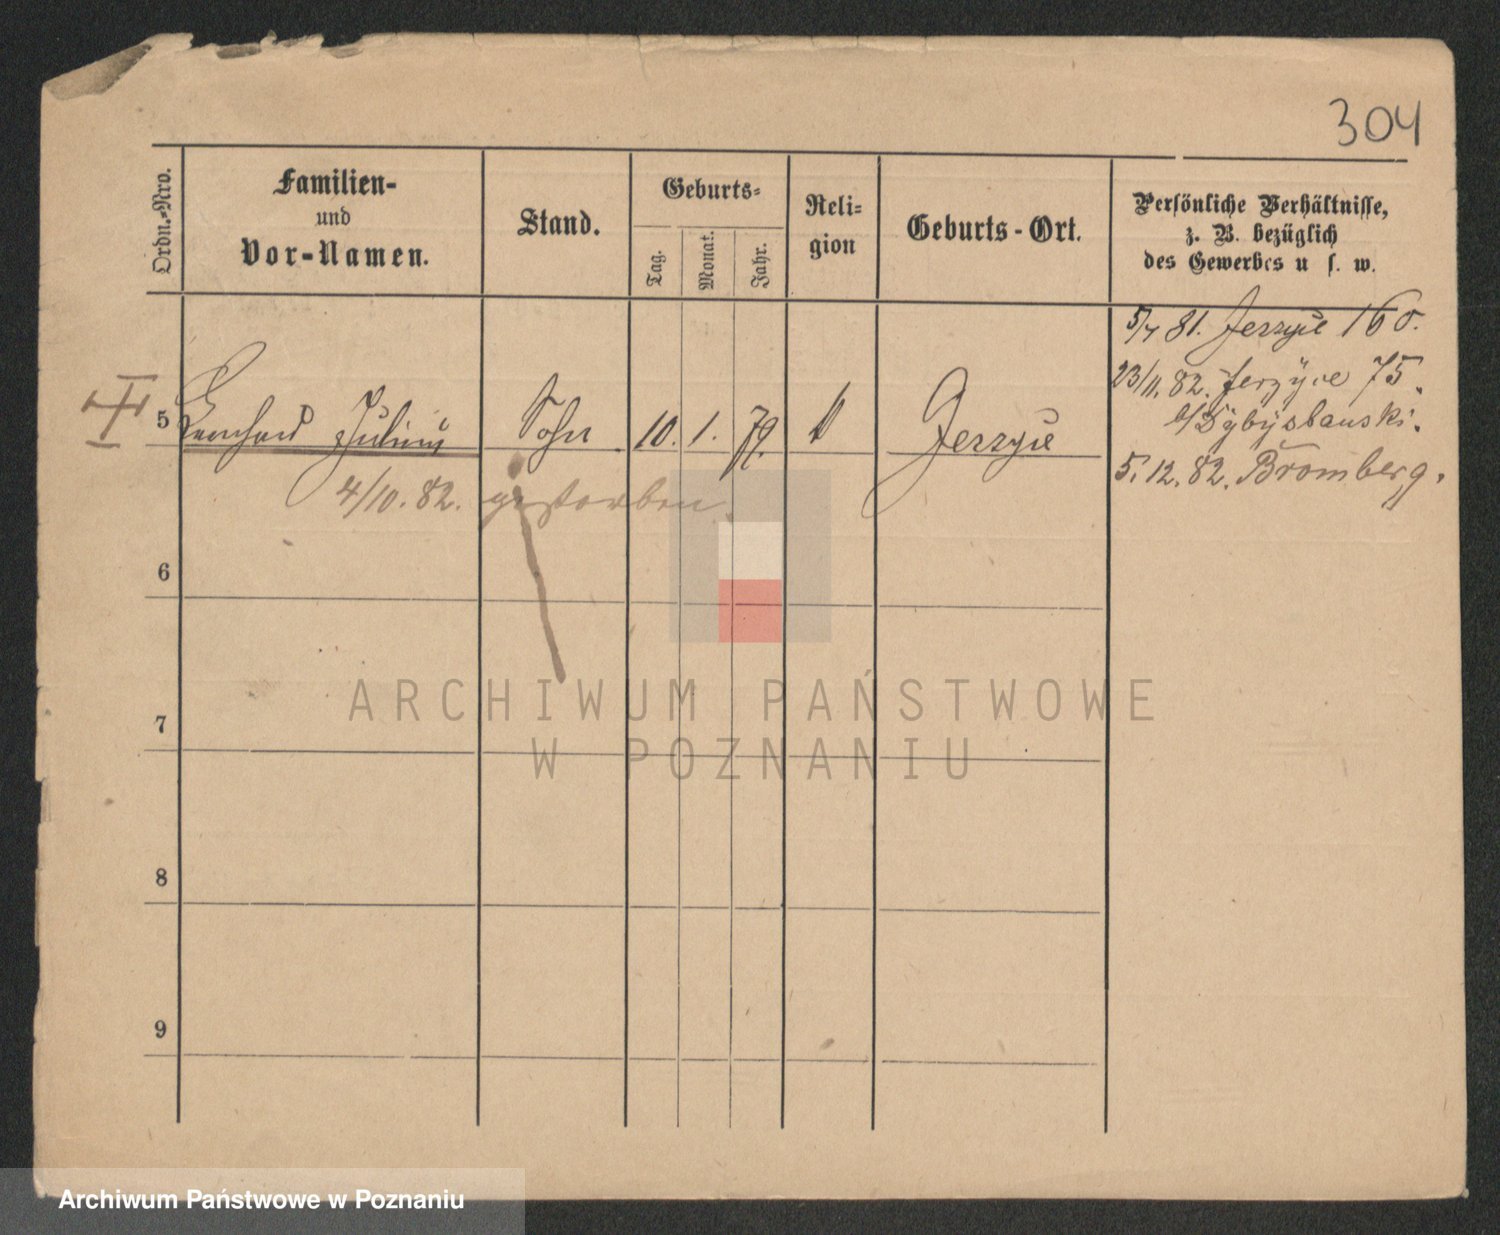 304
Ordn.-Nro.
Familien-
und
Vor-Namen.
Stand.
Geburts-
Tag.
Monat.
Jahr.
Reli-
gion
Geburts-Ort.
Persönliche Verhältnisse,
z. B. bezüglich
des Gewerbes u s. w.
5/7 81. Jerzyce 160.
23/11. 82. Jerzyce 75.
b/Dybysbanski.
5. 12. 82. Bromberg.
5 Leonhard Julius Sohn 10. 1. 79. Jerzyce
4/10. 82. gestorben.
6
7
8
9
ARCHIWUM PAŃSTWOWE
W POZNANIU
Archiwum Państwowe w Poznaniu